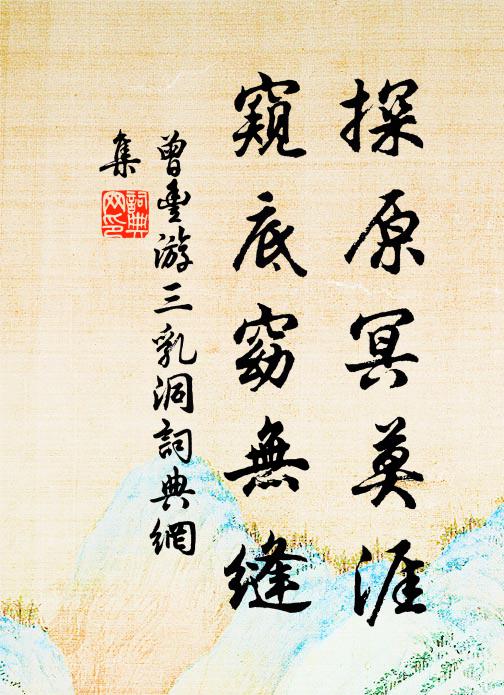 探原冥莫涯
窺底窈無縫
曾豐游三乳洞詞典網
集
詞典网印